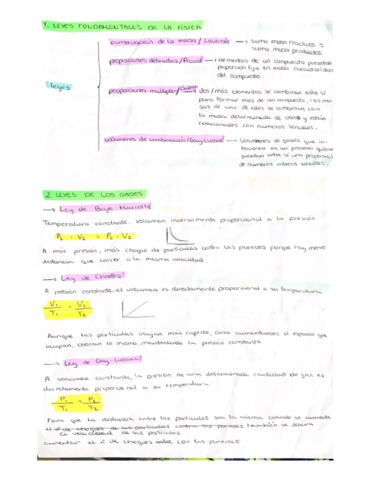 1. LEYES FUNDAMENTALES DE LA FÍSICA
conservación de la masa / Lavoisier → suma masa reactivos =
suma masa productos
proporciones definidas / Proust → elementos de un compuesto presentan
proporción fija en masa
del compuesto.
Leyes
proporciones múltiples / dos / más elementos se combinan entre sí
para formar más de un compuesto, las ma-
sas de uno de ellos se combinan con
la masa determinada de otros y están
relacionados con números sencillos.
volúmenes de combinación / Gay-Lussac → volúmenes de gases que in-
tervienen en un proceso químico
guardan entre sí una proporción
de números enteros sencillos.
2. LEYES DE LOS GASES
→ Ley de Boyle Mariotte
Temperatura constante. Volumen inversamente proporcional a la presión
P₁ · V₁ = P₂ · V₂
A más presión, más choque de partículas contra las paredes porque hay menos
distancia que correr a la misma velocidad.
→ Ley de Charles
A presión constante, el volumen es directamente proporcional a su temperatura
V₁ / T₁ = V₂ / T₂
Aunque las partículas vayan más rápido, como aumentamos el espacio que
ocupan, chocan lo mismo, manteniendo la presión constante
→ Ley de Gay-Lussac
A volumen constante, la presión de una determinada cantidad de gas es
directamente proporcional a su temperatura
P₁ / T₁ = P₂ / T₂
Para que la distancia entre las partículas sea la misma cuando se aumenta
la velocidad de las partículas
aumentar el nº de choques con las paredes